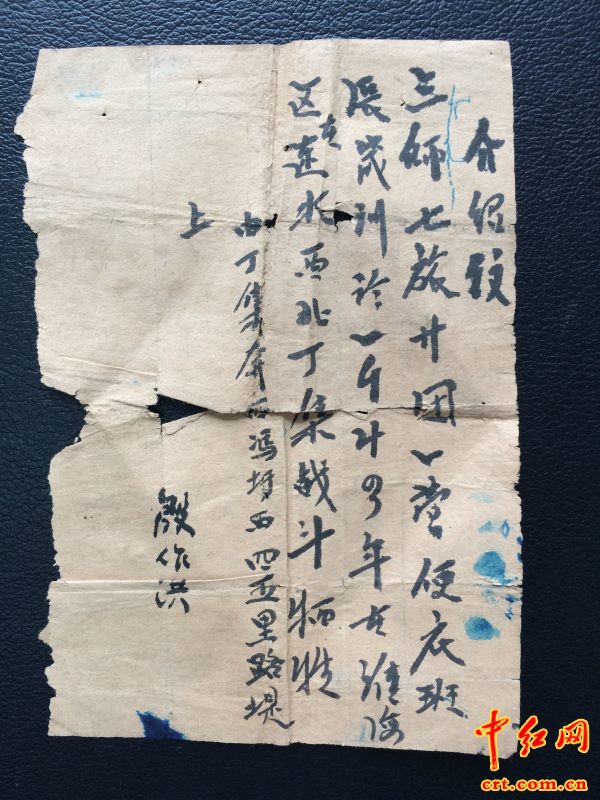 介绍
三师七旅廿团一营便衣班
於一 年在淮海
区在连水西北丁集战斗牺牲
由丁集奔西冯 西四五里路堤
上
殷作洪
中红网
crt.com.cn